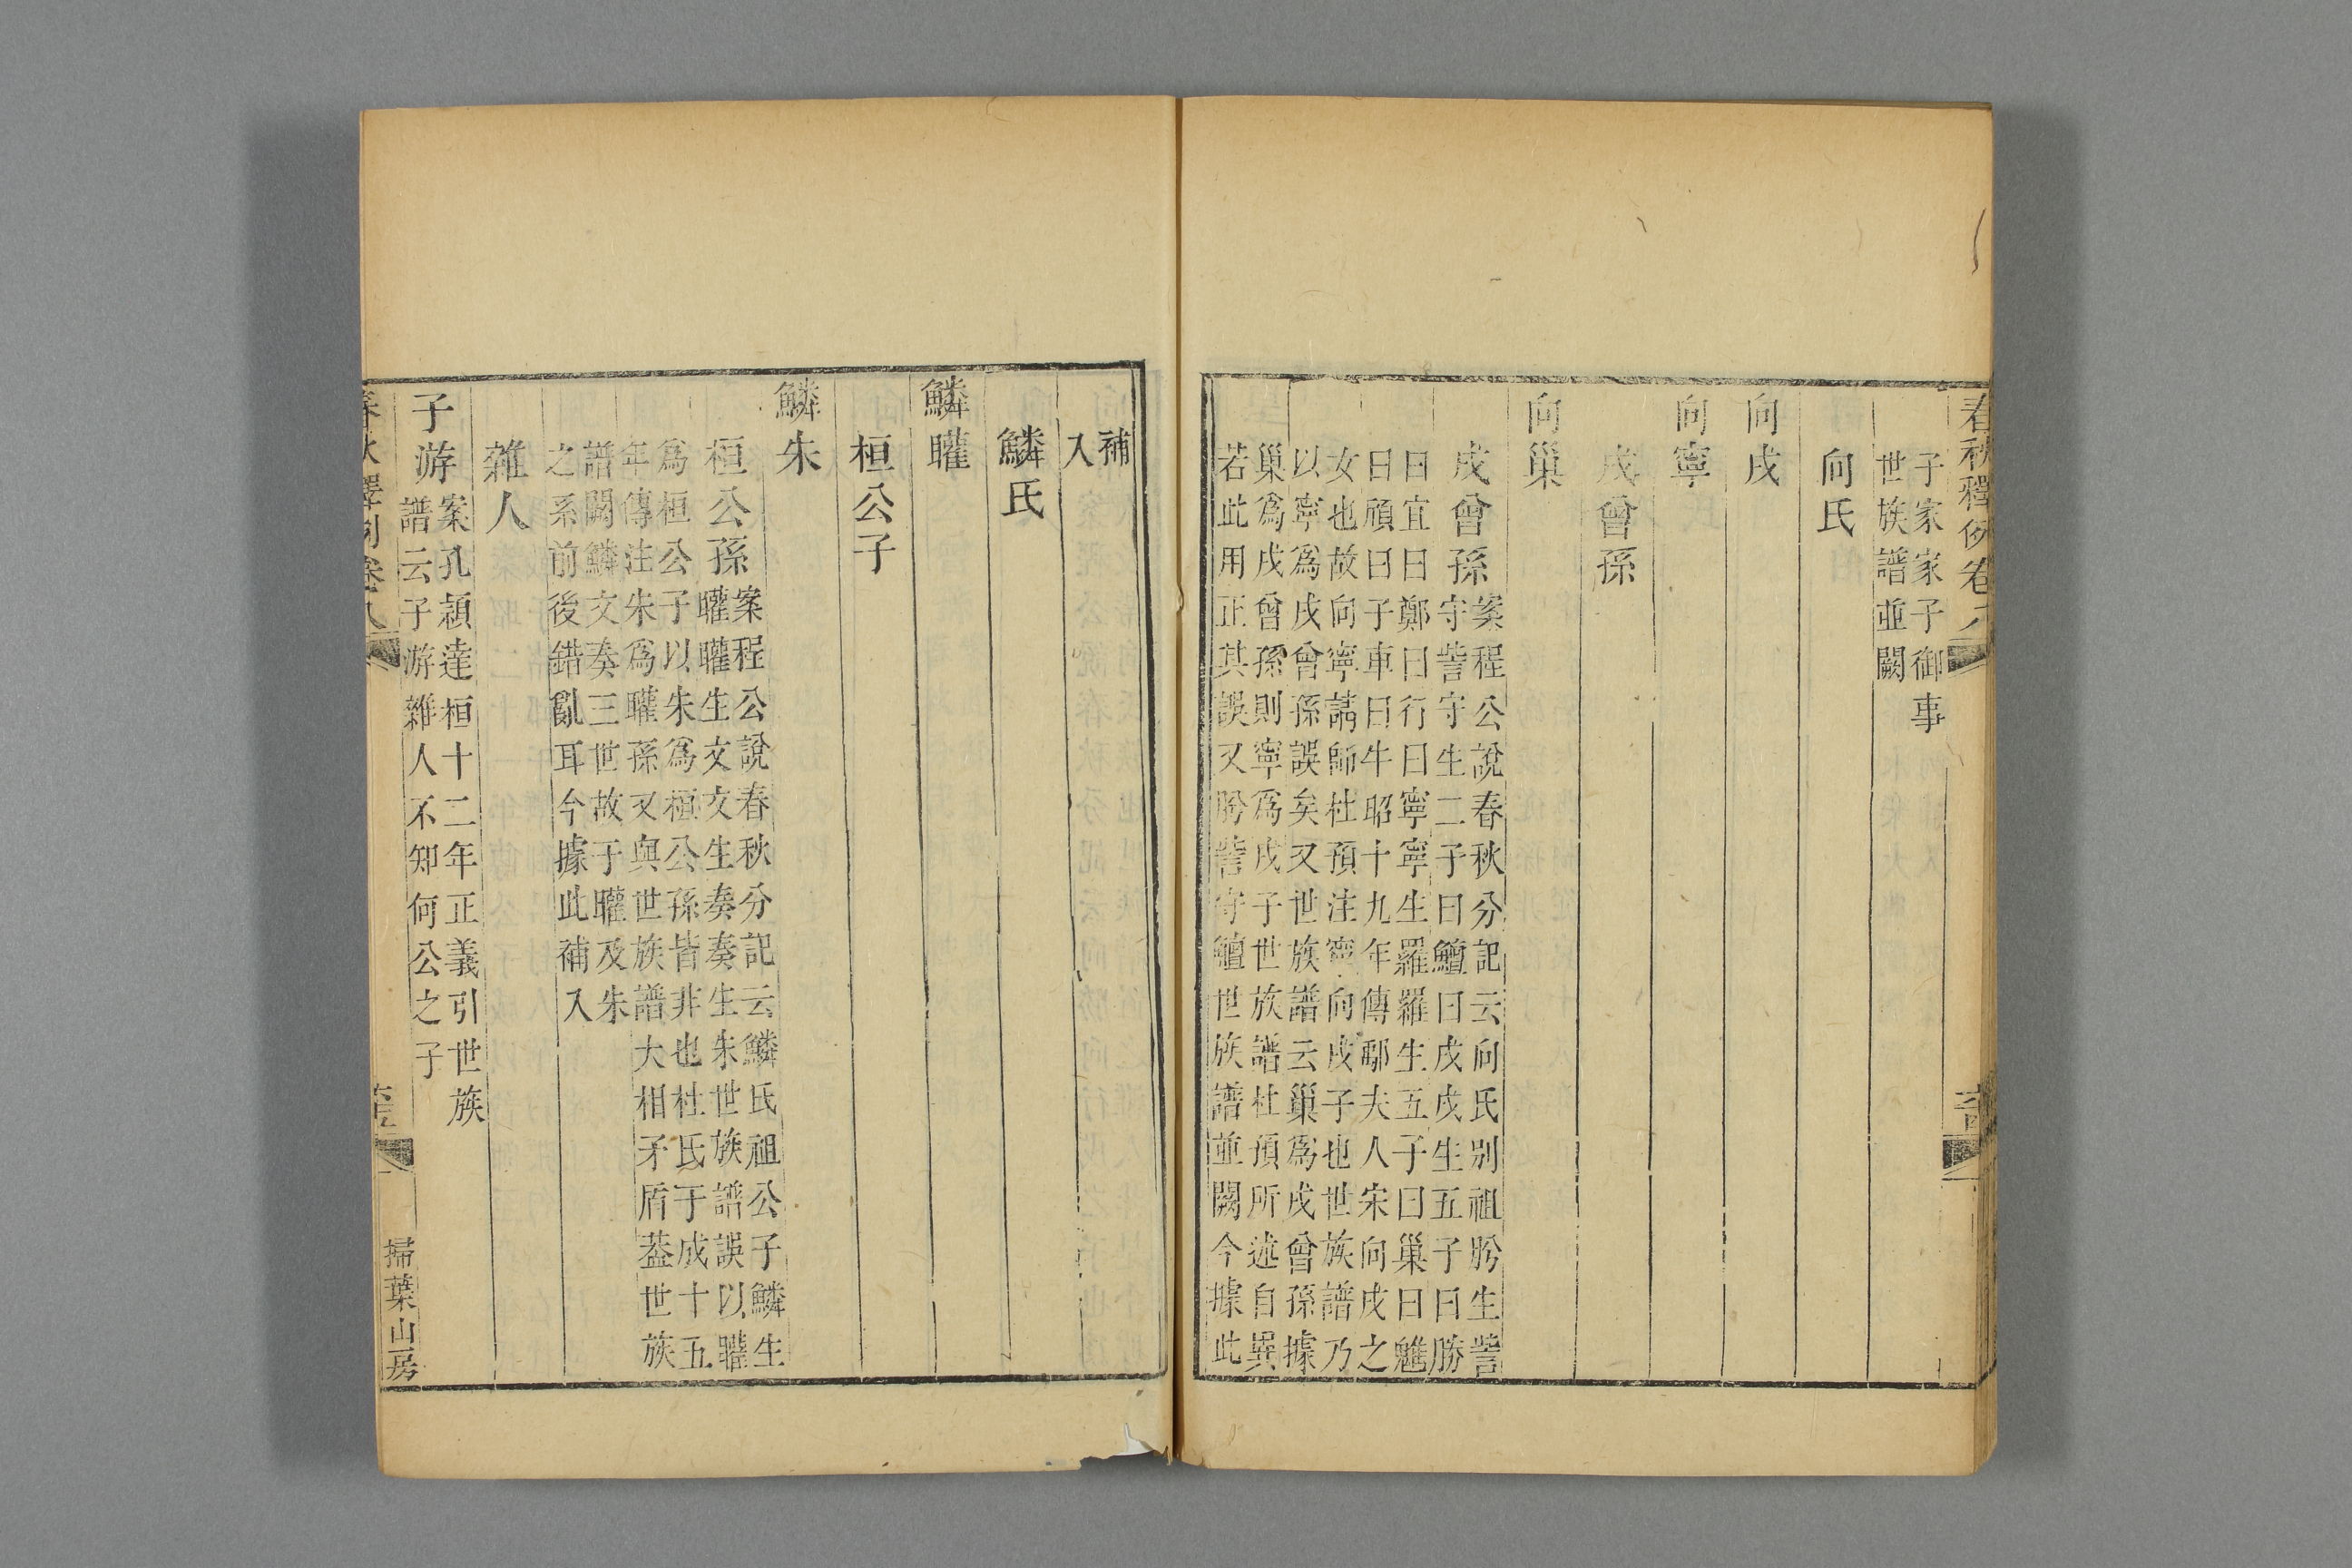 春秋釋例卷八
子家家子御事
世族譜並闕
向氏
向戌
向寧
戌曾孫
向巢
戌曾孫
案程公說春秋分記云向氏别祖肸生訾
守訾守生二子曰鱣曰戌戌生五子曰勝
曰宜曰鄭曰行曰寧寧生羅羅生五子曰巢曰魋
曰頎曰子車曰牛昭十九年傳鄅夫人宋向戌之
女也故向寧請師杜預注寧向戌子也世族譜乃
以寧爲戌曾孫誤矣又世族譜云巢爲戌曾孫據
巢爲戌曾孫則寧爲戌子世族譜杜預所述自異
若此用正其誤又肸訾守鱣世族譜並闕今據此
補
入
鱗氏
鱗矔
桓公子
鱗朱
桓公孫
案程公說春秋分記云鱗氏祖公子鱗生
矔矔生文文生奏奏生朱世族譜誤以矔
爲桓公子以朱爲桓公孫皆非也杜氏于成十五
年傳注朱爲矔孫又與世族譜大相矛盾葢世族
譜闕鱗文奏三世故于矔及朱
之系前後錯亂耳今據此補入
雜人
子游
案孔穎達桓十二年正義引世族
譜云子游雜人不知何公之子
春秋釋例卷八
掃葉山房